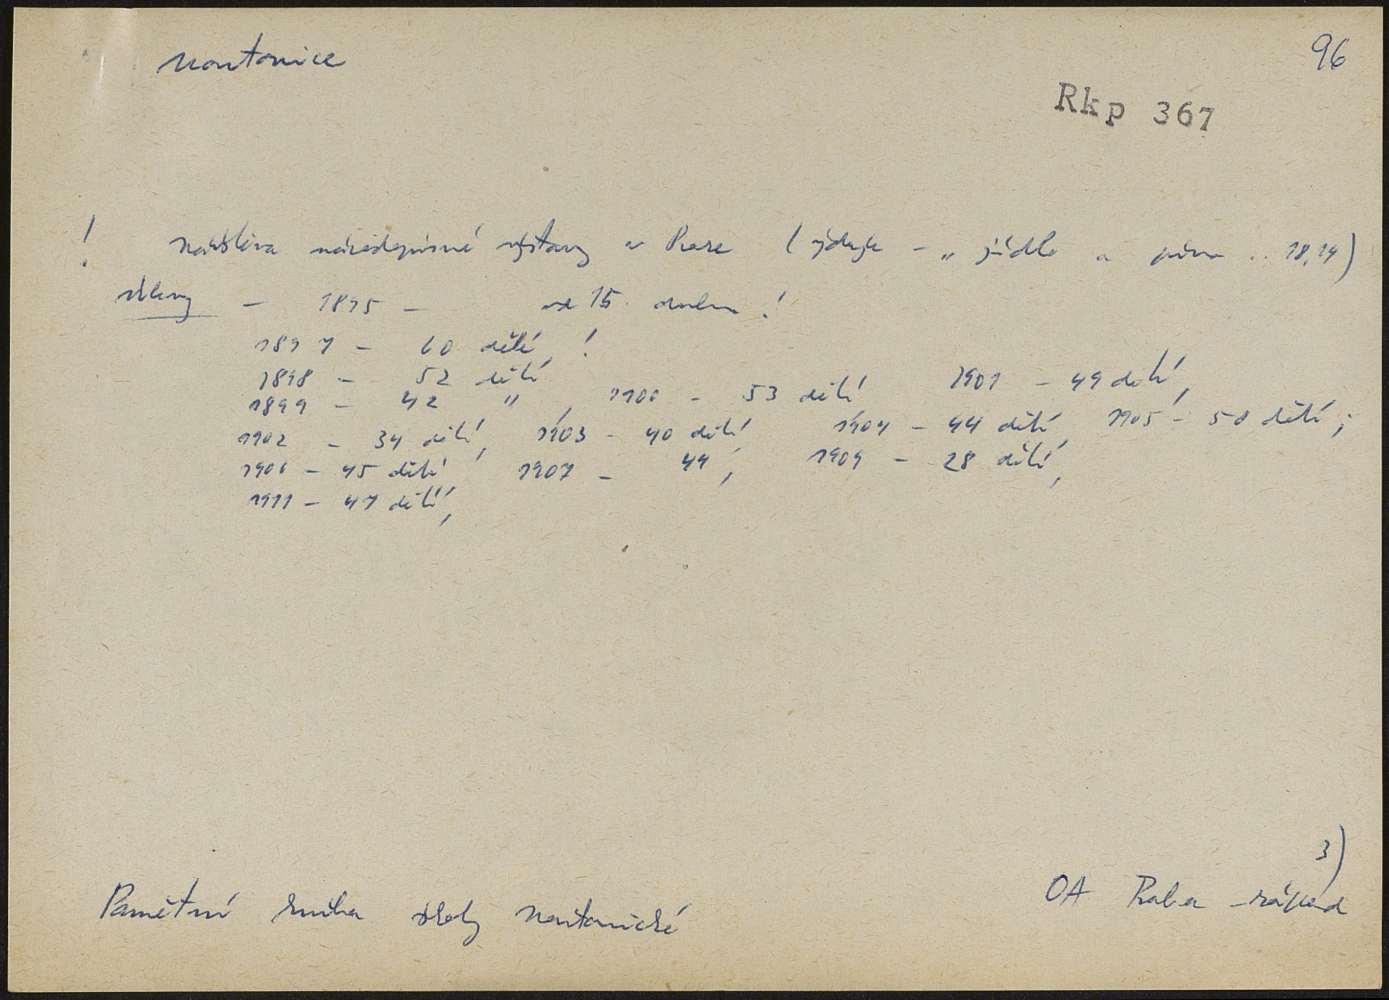 Noutonice
96
Rkp 367
! návštěva národopisné výstavy v Praze ( výdaje - „ jídlo a pivo .. 18,14 )
úlevy - 1895 - od 15. dubna !
1897 - 60 dětí, !
1898 - 52 dětí
1899 - 42 " , 1900 - 53 dětí 1901 - 49 dětí,
1902 - 34 dětí, 1903 - 40 dětí, 1904 - 44 dětí, 1905 - 50 dětí ;
1906 - 45 dětí, 1907 - 44, 1909 - 28 dětí,
1911 - 47 dětí,
3)
Pamětní kniha školy noutonické
OA Praha - západ